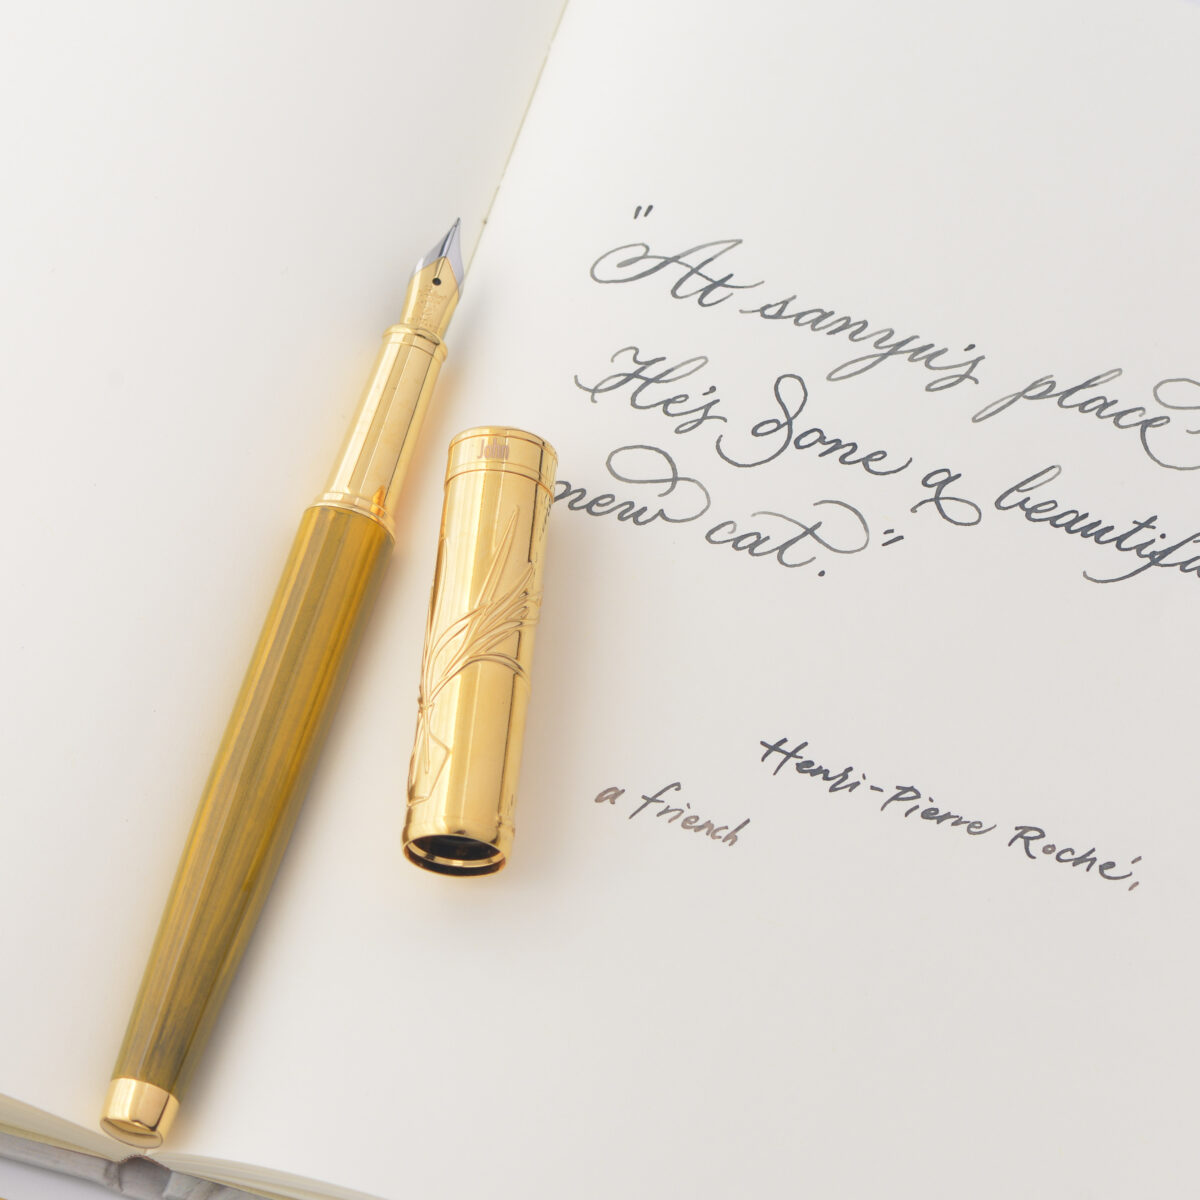 "At sanyu's place
He's done a beautiful
new cat."
Henri-Pierre Roché,
a friench
John